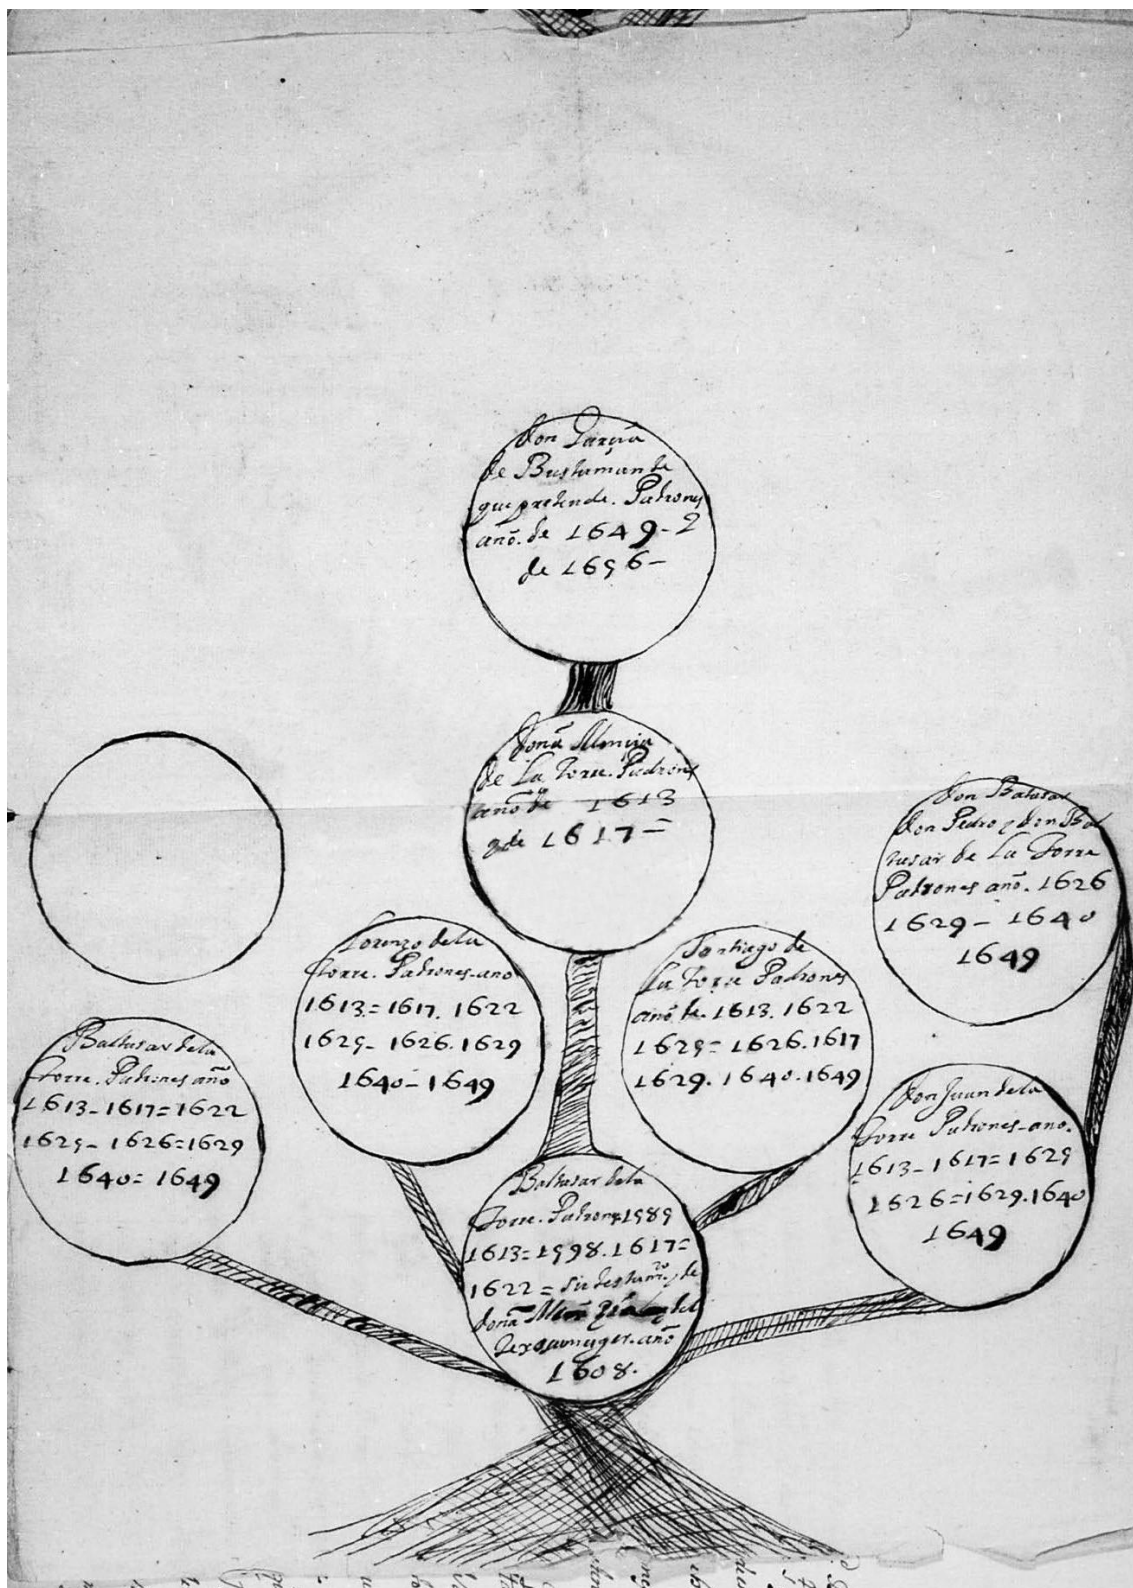 don Garçia
de Bustamante
que pretende. Padrones
año. de 1649 - 2
de 1656 -
doña Mençia
de La Torre. Padrones
año de 1613
y de 1617 =
don Baltasar
don Pedro y don Bal
tasar de La Torre
Padrones año. 1626
1629 - 1640
1649
Lorenzo de la
Torre. Padrones - ano
1613 = 1617. 1622
1625 - 1626. 1629
1640 - 1649
Santiago de
La Torre Padrones
año de. 1613. 1622
1625 = 1626. 1617
1629. 1640. 1649
Baltasar de la
Torre. Padrones año
1613 - 1617 = 1622
1625 - 1626 = 1629
1640 = 1649
don Juan de la
Torre Padrones - ano.
1613 - 1617 = 1625
1626 = 1629. 1640
1649
Baltasar de la
Torre. Padrones 1589
1613 = 1598. 1617 =
1622 = su testamto y de
doña
su muger. año
1608.